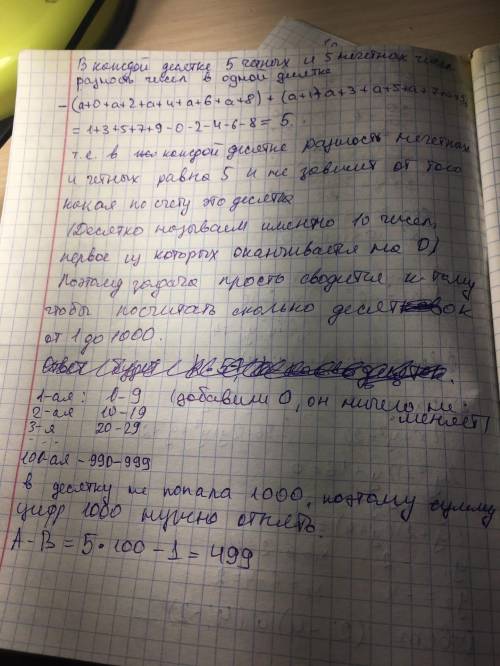 В каждой десятке 5 чётных и 5 нечётных чисел
разность чисел в одной десятке
-(a+0+a+2+a+4+a+6+a+8)+(a+1+a+3+a+5+a+7+a+9)
=1+3+5+7+9-0-2-4-6-8=5.
т.е. в каждой десятке разность нечётных
и чётных равна 5 и не зависит от того
какая по счету это десятка
(Десяткой называем именно 10 чисел,
первое из которых оканчивается на 0)
Поэтому задача просто сводится к тому
чтобы посчитать сколько десятков
от 1 до 1000.
1-ая: 0-9 (добавили 0, он ничего не
меняет)
2-ая 10-19
3-я 20-29
....
100-ая - 990-999
в десятку не попала 1000, поэтому сумму
цифр 1000 нужно отнять.
A-B=5·100-1=499